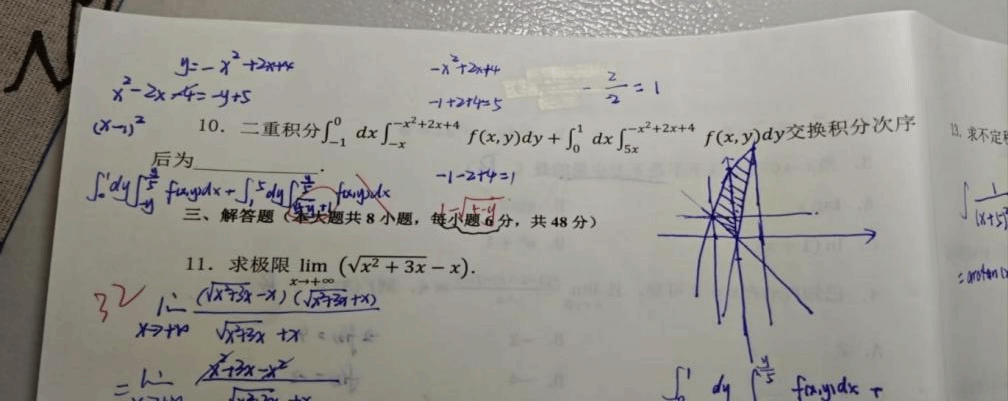 y=-x²+2x+4
-x²+2x+4
x²-2x-4=-y+5
-1+2+4=5
-2/-2=1
(x-1)²
10. 二重积分∫₋₁⁰ dx∫₋ₓ^(-x²+2x+4) f(x,y)dy+∫₀¹ dx∫₅ₓ^(-x²+2x+4) f(x,y)dy交换积分次序
13. 求不定积
后为____________.
∫₀¹dy∫₋y^(y/5) f(x,y)dx+∫₁⁵dy∫^(y/5) f(x,y)dx
-1-2+4=1
1-√(5-y)
三、解答题（本大题共 8 小题，每小题 6 分，共 48 分）
∫ 1/(x+5)
11. 求极限 lim(x→+∞) (√(x²+3x)-x).
=arctan
3 2
lim(x→+∞) (√(x²+3x)-x)(√(x²+3x)+x)/(√(x²+3x)+x)
= lim(x→+∞) (x²+3x-x²)/(√(x²+3x)+x)
∫₀¹ dy ∫₋y^(y/5) f(x,y)dx +